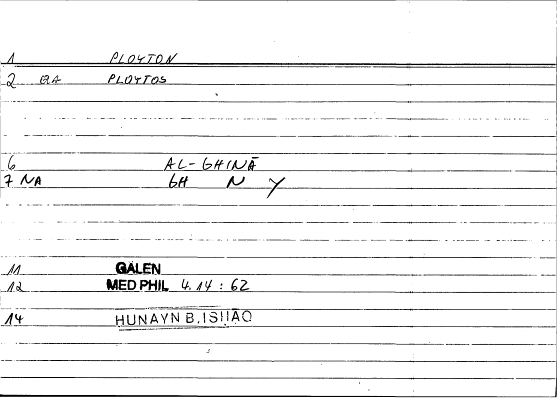 1 PLOYTON
2 QA PLOYTOS
6 AL-GHINĀ
7 NA GH N Y
11 GALEN
12 MED PHIL 4.14 : 62
14 HUNAYN B. ISḤĀQ